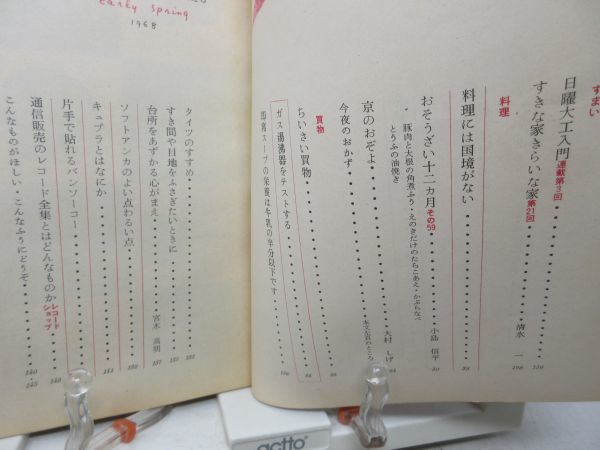 すまい
日曜大工入門 連載第3回
すきな家きらいな家 第21回 清水 一
料理
料理には国境がない
おそうざい十二カ月 その59 小島 信平
豚肉と大根の角煮ふう・えのきだけのたらこあえ・かぶらなべ
とうふの油焼き
京のおぞよ 大村 しげ
今夜のおかず
買物
ちいさい買物 98
ガス湯沸器をテストする
即席スープの栄養は牛乳の半分以下です
early spring
1968
タイツのすすめ
すき間や目地をふさぎたいときに
台所をあずかる心がまえ 宮本 高明
ソフトアンカのよい点わるい点
キュプラとはなにか
片手で貼れるバンソーコー
通信販売のレコード全集とはどんなものか レコードショップ
こんなものがほしい・こんなふうにどうぞ
actto